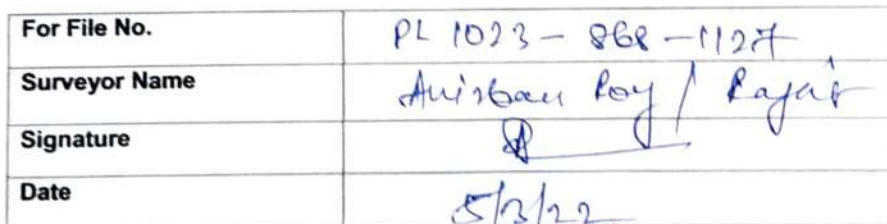 For File No. PL 1023 - 868 - 1127
Surveyor Name Anirban Roy / Rajat
Signature
Date 5/3/22